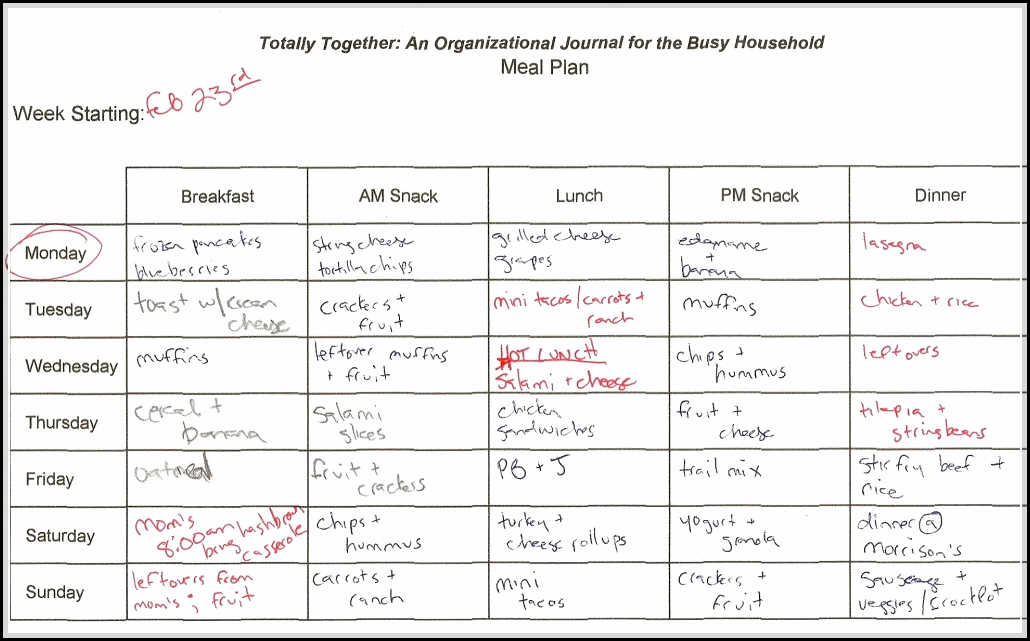 Totally Together: An Organizational Journal for the Busy Household
Meal Plan
Week Starting: Feb 23rd
Breakfast
AM Snack
Lunch
PM Snack
Dinner
Monday
frozen pancakes
blueberries
string cheese
tortilla chips
grilled cheese
grapes
edamame
+
banana
lasagna
Tuesday
toast w/cream
cheese
crackers +
fruit
mini tacos/carrots +
ranch
muffins
chicken + rice
Wednesday
muffins
leftover muffins
+ fruit
HOT LUNCH
Salami + cheese
chips +
hummus
leftovers
Thursday
cereal +
banana
Salami
slices
chicken
sandwiches
fruit +
cheese
tilapia +
stringbeans
Friday
oatmeal
fruit +
crackers
PB + J
trail mix
stir fry beef +
rice
Saturday
mom's
8:00am
bring hashbrown
casserole
chips +
hummus
turkey +
cheese rollups
yogurt +
granola
dinner @
Morrison's
Sunday
leftovers from
mom's; fruit
carrots +
ranch
mini
tacos
crackers +
fruit
Sausage +
veggies/crockpot